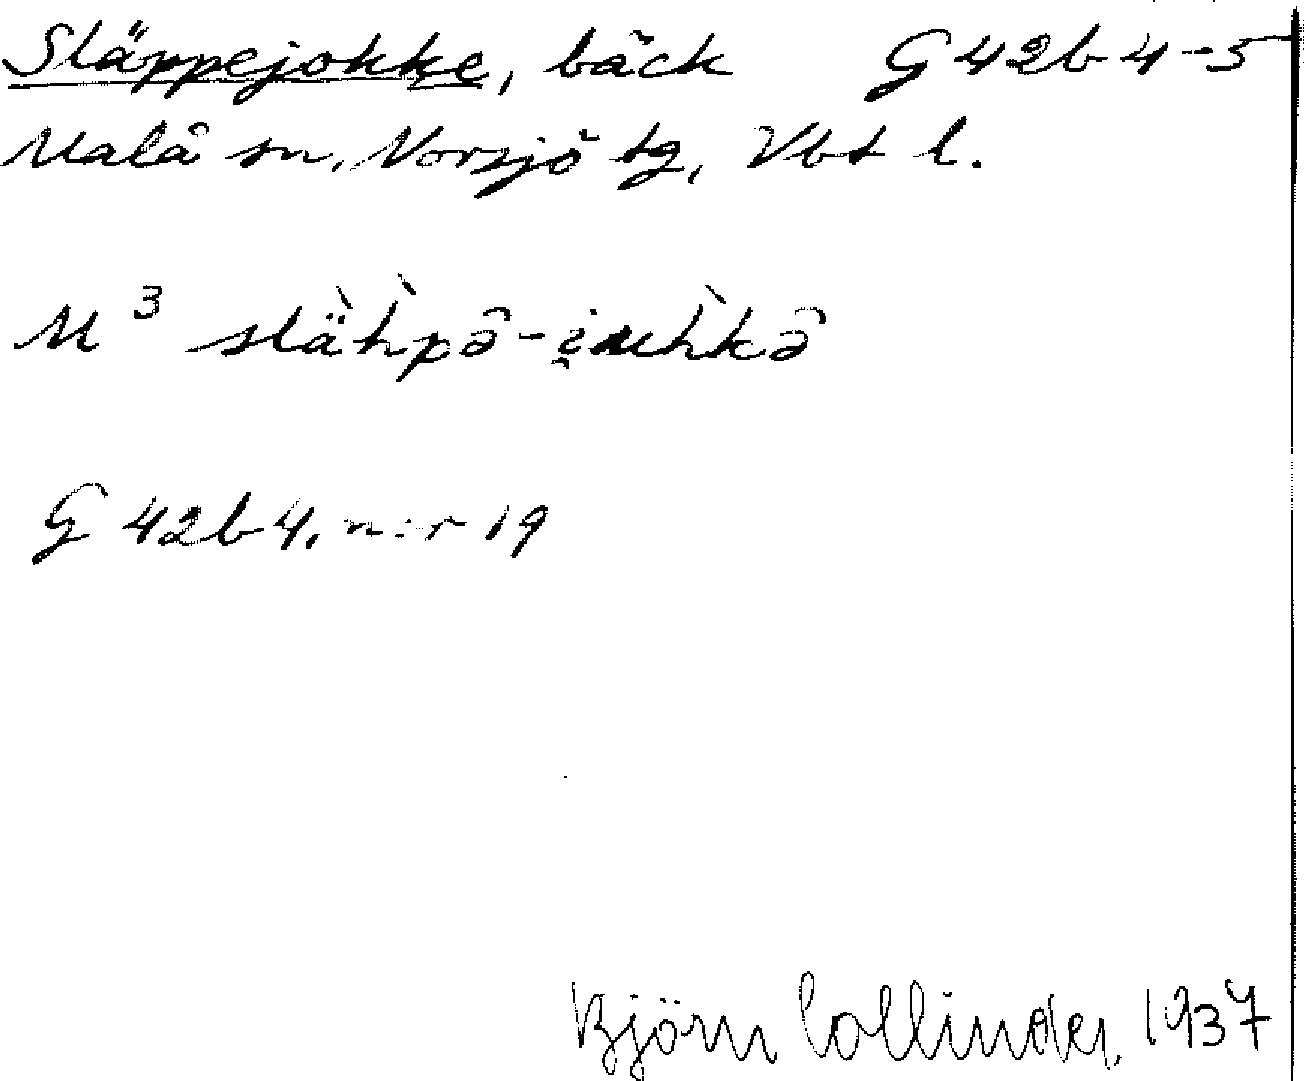 Släppejokke, bäck G 42b 4-5
Malå sn, Norsjö tg, Vbt l.
M³ slä̀h̀pə̑-i̯uh̀kə̑
G 42b 4, n:r 19
Björn Collinder, 1937